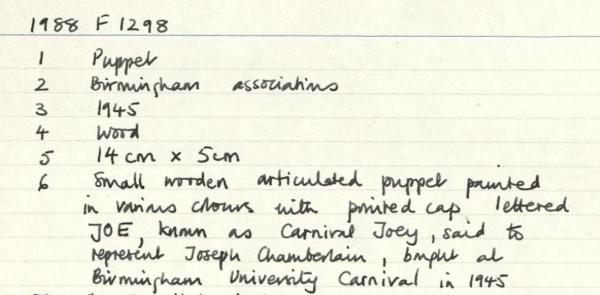 1988 F 1298
1 Puppet
2 Birmingham associations
3 1945
4 Wood
5 14 cm x 5cm
6 Small wooden articulated puppet painted
in various colours with pointed cap, lettered
JOE, known as Carnival Joey, said to
represent Joseph Chamberlain, bought at
Birmingham University Carnival in 1945